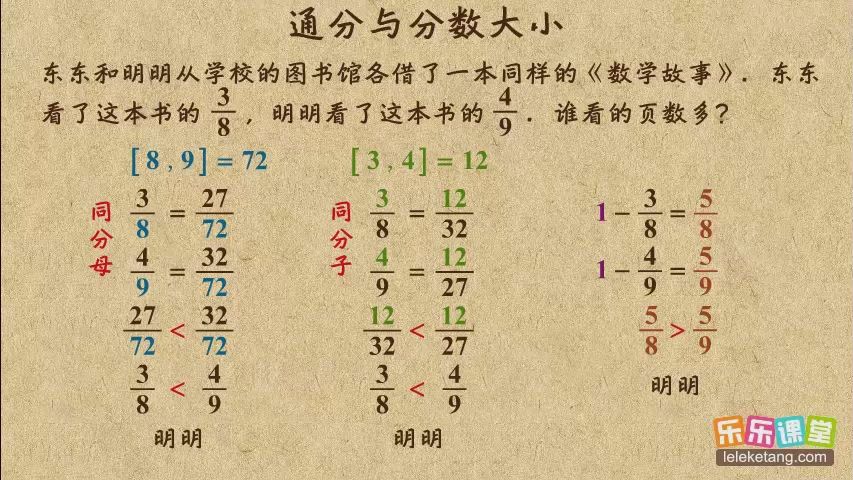 通分与分数大小
东东和明明从学校的图书馆各借了一本同样的《数学故事》. 东东
看了这本书的 3/8 , 明明看了这本书的 4/9 . 谁看的页数多?
[ 8 , 9 ] = 72
同分母
3/8 = 27/72
4/9 = 32/72
27/72 < 32/72
3/8 < 4/9
明明
[ 3 , 4 ] = 12
同分子
3/8 = 12/32
4/9 = 12/27
12/32 < 12/27
3/8 < 4/9
明明
1 - 3/8 = 5/8
1 - 4/9 = 5/9
5/8 > 5/9
明明
乐乐课堂
leleketang.com